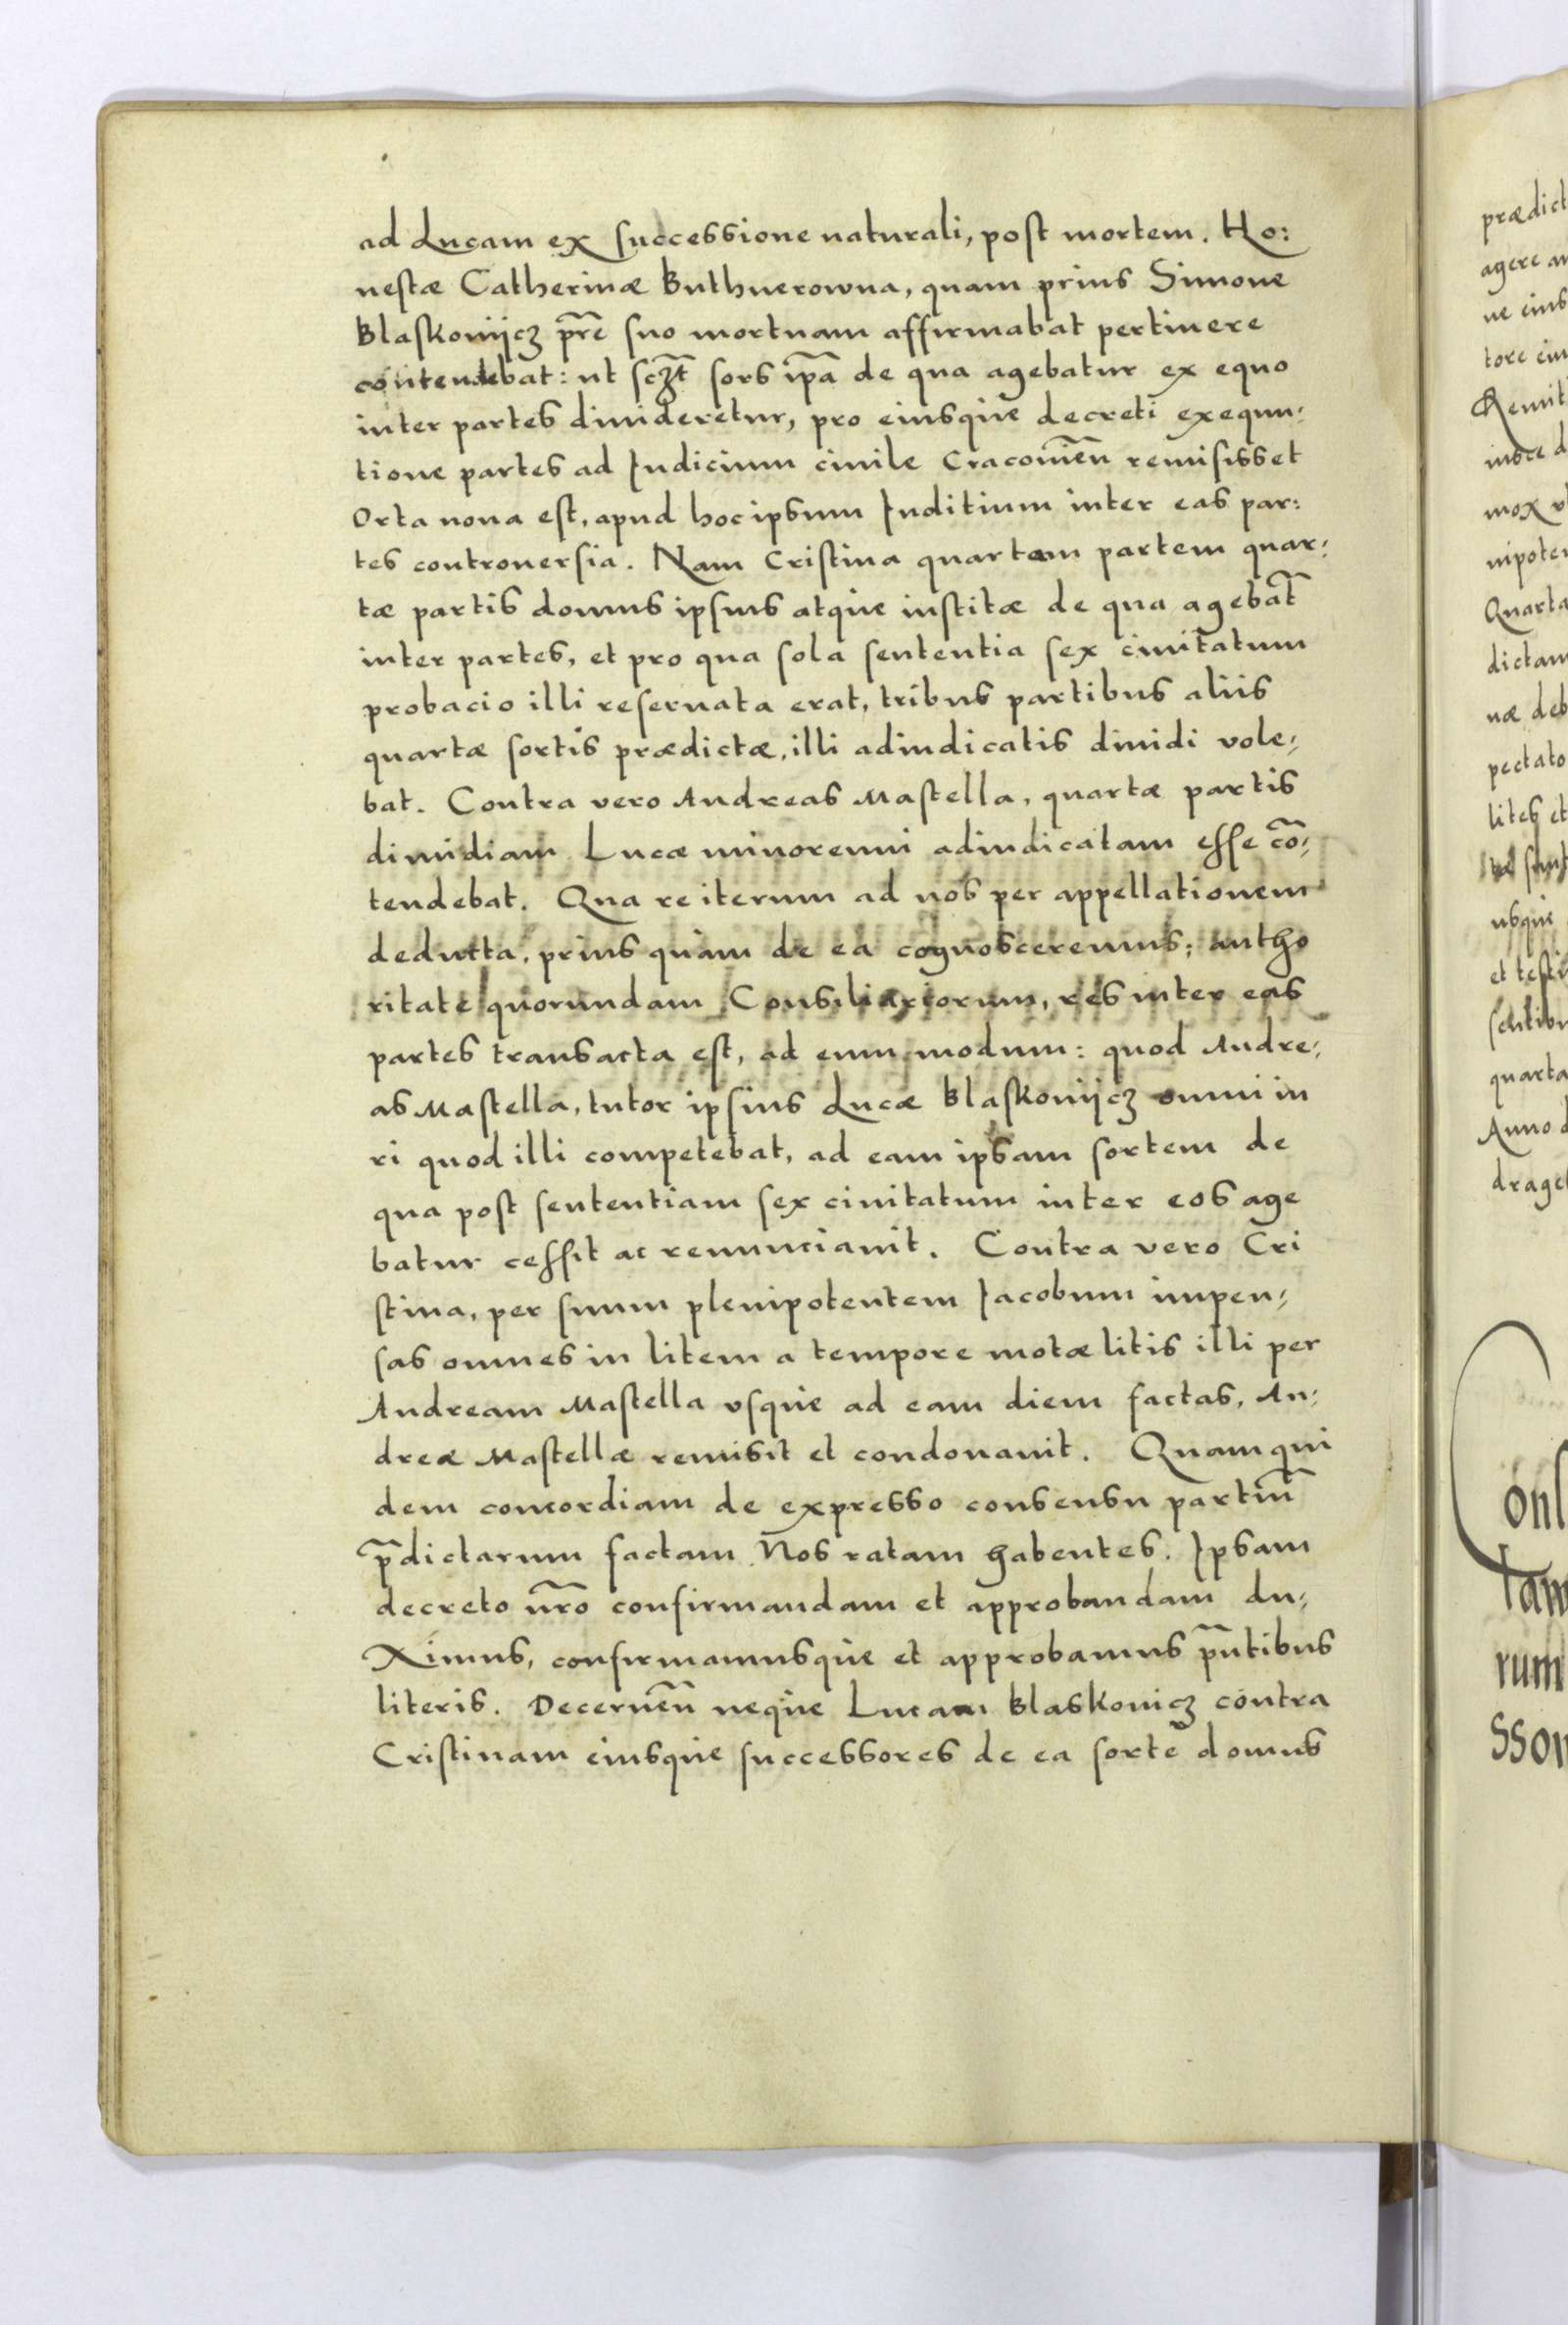 ad Lucam ex successione naturali, post mortem. Ho:
nestæ Catherinæ Buthnerowna, quam prius Simone
Blaskowijcz pr̃e suo mortuam affirmabat pertinere
contendebat: ut scz̃t sors ip̃a de qua agebatur ex equo
inter partes diuideretur, pro eiusque decreti exequu-
tione partes ad Iudicium ciuile Cracouien̄ remisisset
Orta noua est, apud hoc ipsum Iuditium inter eas par:
tes controuersia. Nam Cristina quartam partem quar-
tæ partis domus ipsius atque institæ de qua agebat̃
inter partes, et pro qua sola sententia sex ciuitatum
probacio illi reseruata erat, tribus partibus aliis
quartæ sortis prædictæ, illi adiudicatis diuidi vole-
bat. Contra vero Andreas Mastella, quartæ partis
dimidiam Lucæ minorenni adiudicatam esse cō-
tendebat. Qua re iterum ad nos per appellationem
deducta, prius quàm de ea cognosceremus: autho
ritate quorundam Consiliariorum, res inter eas
partes transacta est, ad eum modum: quod Andre-
as Mastella, tutor ipsius Lucæ Blaskowijcz omni iu
ri quod illi competebat, ad eam ipsam sortem de
qua post sententiam sex ciuitatum inter eos age
batur cessit ac renunciauit. Contra vero Cri
stina, per suum plenipotentem Iacobum impen-
sas omnes in litem a tempore motæ litis illi per
Andream Mastella vsque ad eam diem factas, An-
dreæ Mastellæ remisit et condonauit. Quam qui
dem concordiam de expresso consensu partiū
p̄dictarum factam Nos ratam habentes. Ipsam
decreto nr̃o confirmandam et approbandam du-
ximus, confirmamusque et approbamus pñtibus
literis. Decernen̄ neque Lucam Blaskouicz contra
Cristinam eiusque successores de ea sorte domus
prædict
agere
tore
Remit
mox
Quarta
dictam
næ deb
pectato
lites et
usque
et testi
quarta
Anno d
drage
Cons
tam
rum
sson